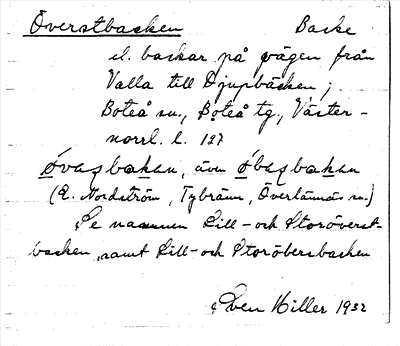 Överstbacken Backe
st. backar på vägen från
Valla till Djupbäcken;
Boteå sn., Boteå tg., Väster-
norrl. l. 127
øvaʂbakan, även øbaʂbakan
(E. Nordström, Tybränn, Överlännäs sn.)
Se namnen Lill- och Storöverst-
backen, samt Lill- och Storöbersbacken
Sven Hiller 1932